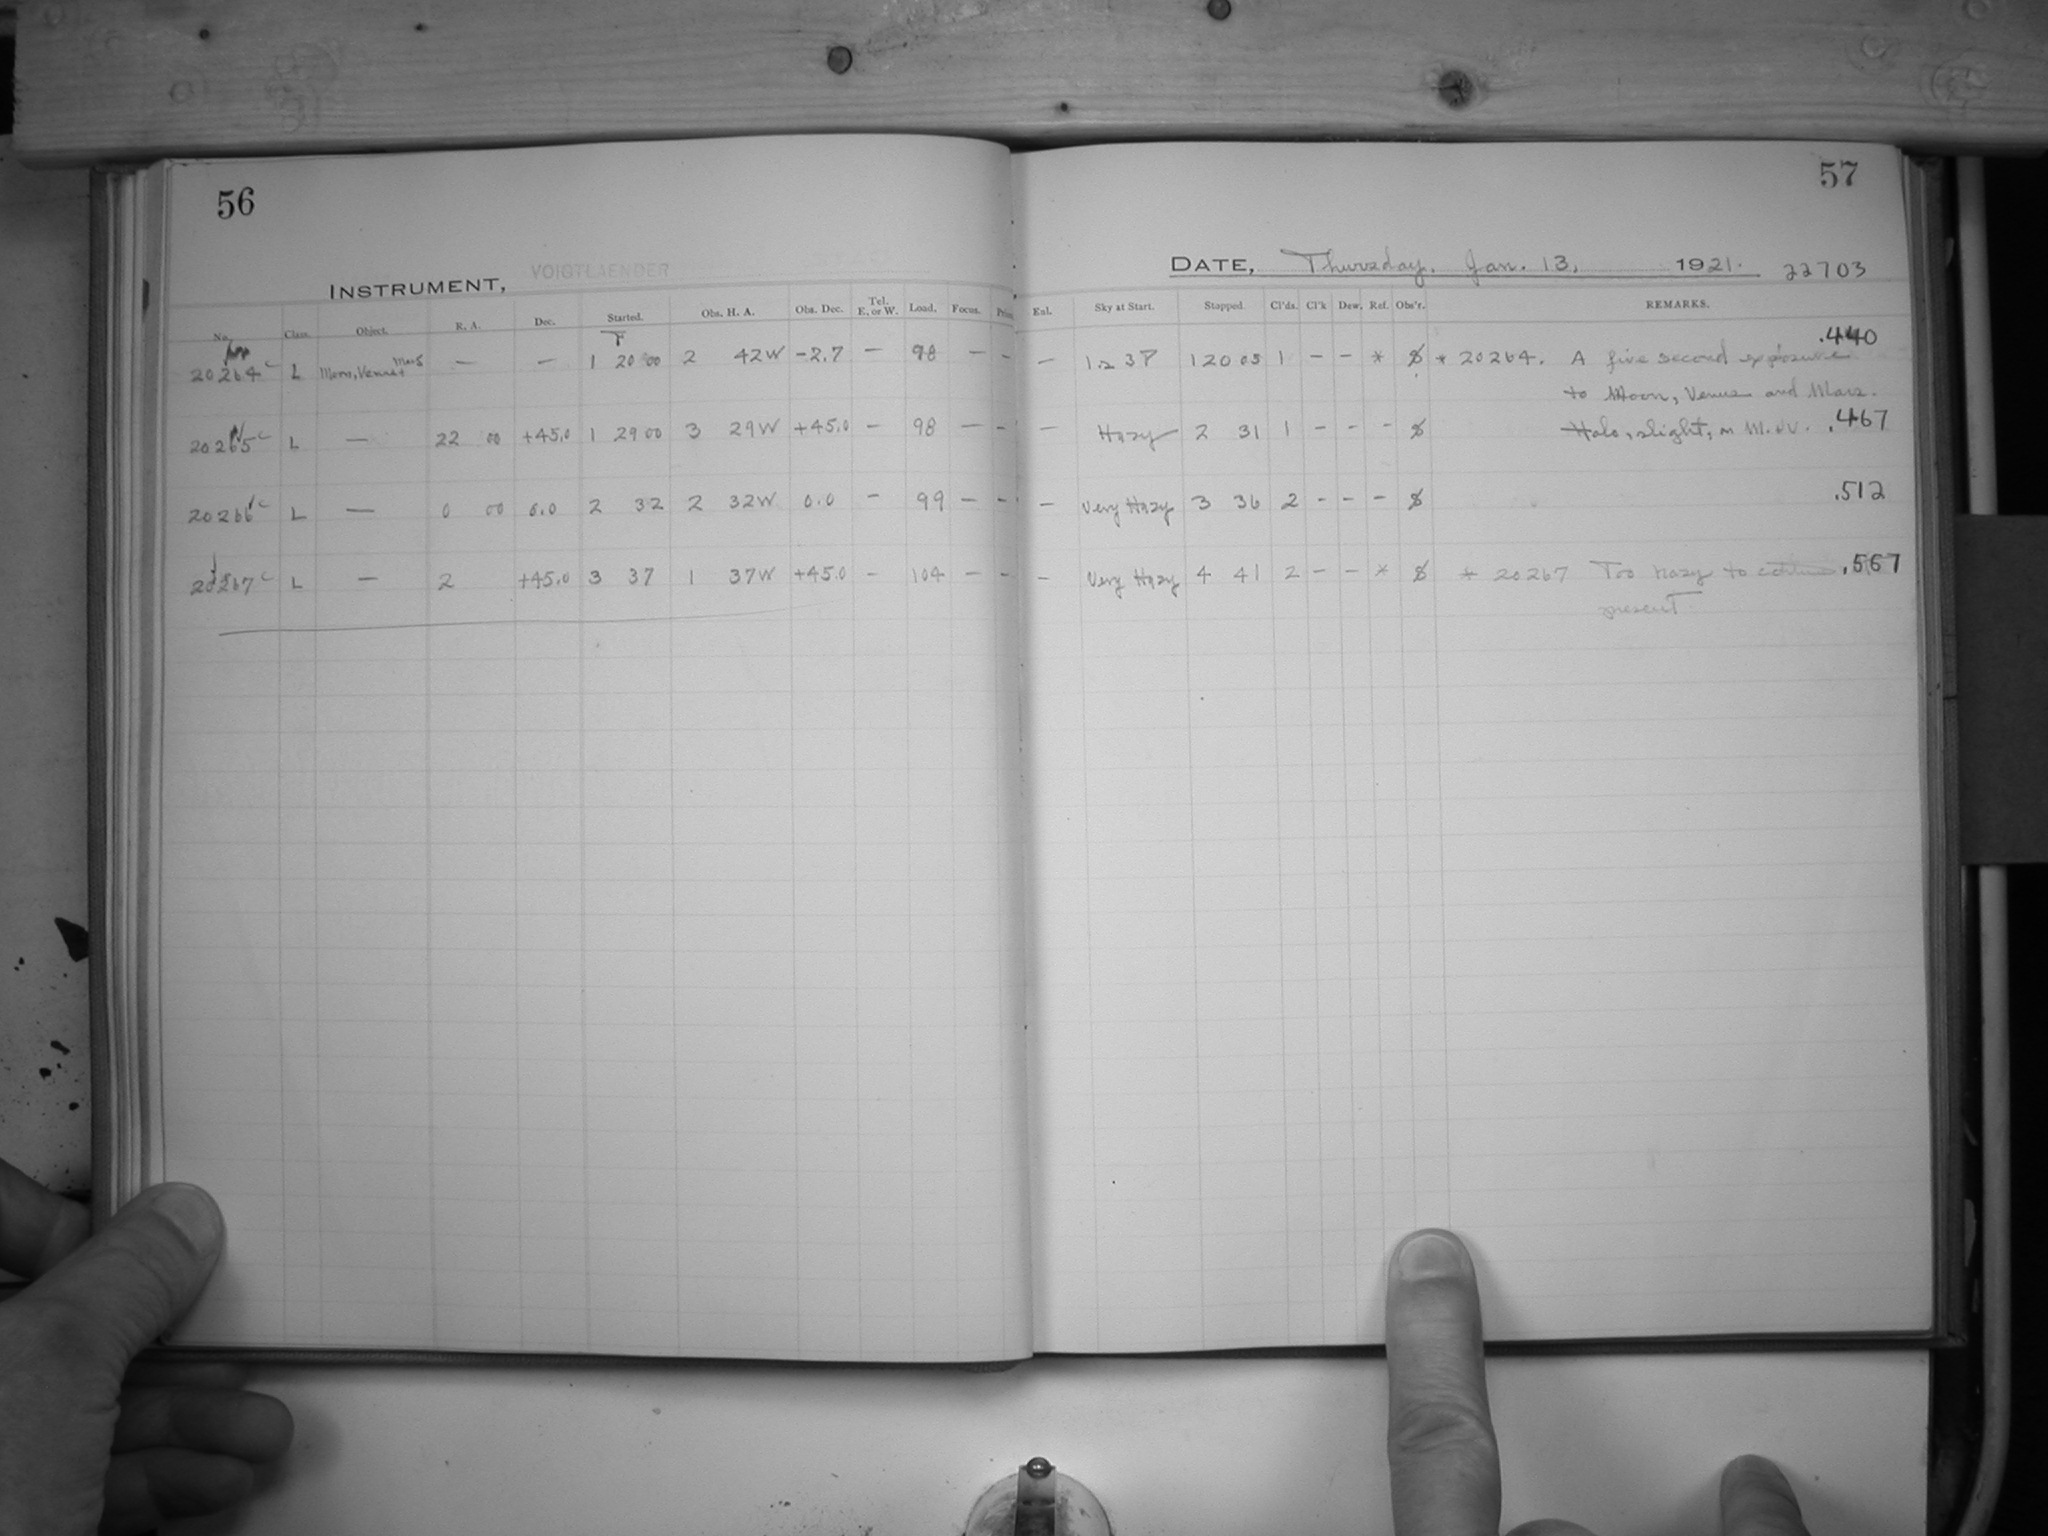 56
INSTRUMENT, VOIGTLAENDER
No. Class. Object. R. A. Dec. Started. Obs. H. A. Obs. Dec. Tel. E. or W. Load. Focus.
20264 c L Moon, Venus + Mars — — 1 20 00 2 42W -2.7 — 98 — —
20265 c L — 22 00 +45.0 1 29 00 3 29W +45.0 — 98 — —
20266 c L — 0 00 0.0 2 32 2 32W 0.0 — 99 — —
20267 c L — 2 +45.0 3 37 1 37W +45.0 — 104 — —
57
DATE, Thursday, Jan. 13, 1921. 22703
Enl. Sky at Start. Stopped. Cl'ds. Cl'k Dew. Ref. Obs'r. REMARKS.
.440
— 1 20 05 1 — — * * 20264. A five second exposure
to Moon, Venus and Mars.
— Hazy 2 31 1 — — — Halo, slight, on M. & V. .467
— Very Hazy 3 36 2 — — — .512
— Very Hazy 4 41 2 — — * * 20267 Too hazy to .567
present